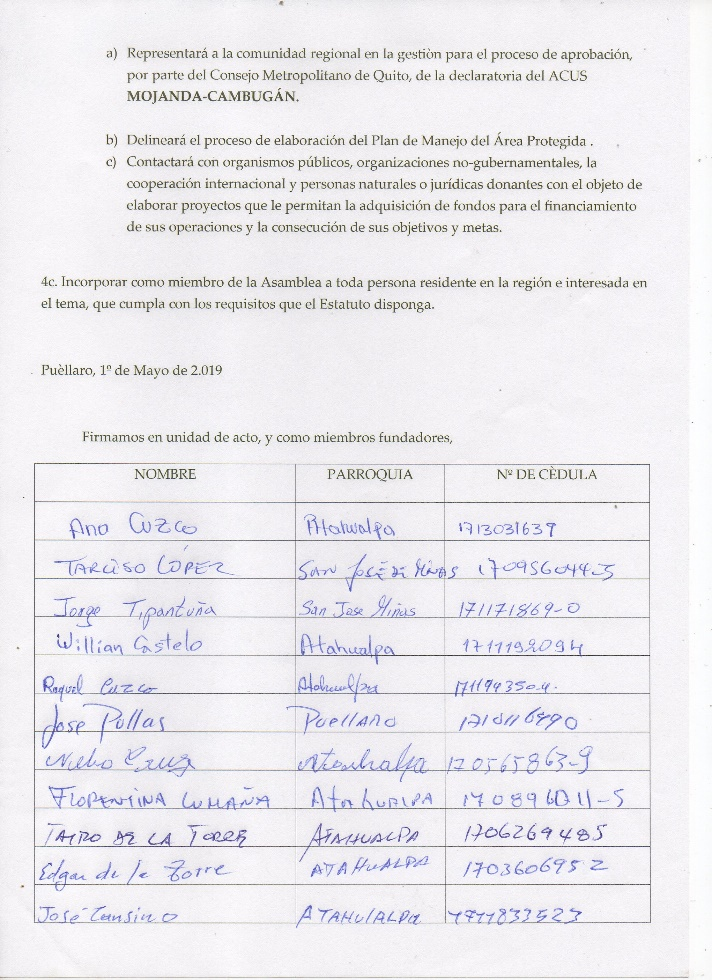 a) Representará a la comunidad regional en la gestiòn para el proceso de aprobación,
por parte del Consejo Metropolitano de Quito, de la declaratoria del ACUS
MOJANDA-CAMBUGÁN.
b) Delineará el proceso de elaboración del Plan de Manejo del Área Protegida .
c) Contactará con organismos públicos, organizaciones no-gubernamentales, la
cooperación internacional y personas naturales o jurídicas donantes con el objeto de
elaborar proyectos que le permitan la adquisición de fondos para el financiamiento
de sus operaciones y la consecución de sus objetivos y metas.
4c. Incorporar como miembro de la Asamblea a toda persona residente en la región e interesada en
el tema, que cumpla con los requisitos que el Estatuto disponga.
Puèllaro, 1º de Mayo de 2.019
Firmamos en unidad de acto, y como miembros fundadores,
NOMBRE PARROQUIA Nº DE CÈDULA
Ana Cuzco Atahualpa 1713031639
TARCISO LÓPEZ SAN JOSÉ DE MINAS 170956044-5
Jorge Tipantuña San Jose Minas 171171869-0
Willian Castelo Atahualpa 1711192094
Raquel Cuzco Atahualpa
Jose Pullas PUELLARO
Cruz Atahualpa 170565863-9
FLORENTINA Atahualpa
DE LA TORRE ATAHUALPA 1706269485
Edgar de la Torre ATAHUALPA 1703606952
José Cansino 1711833523